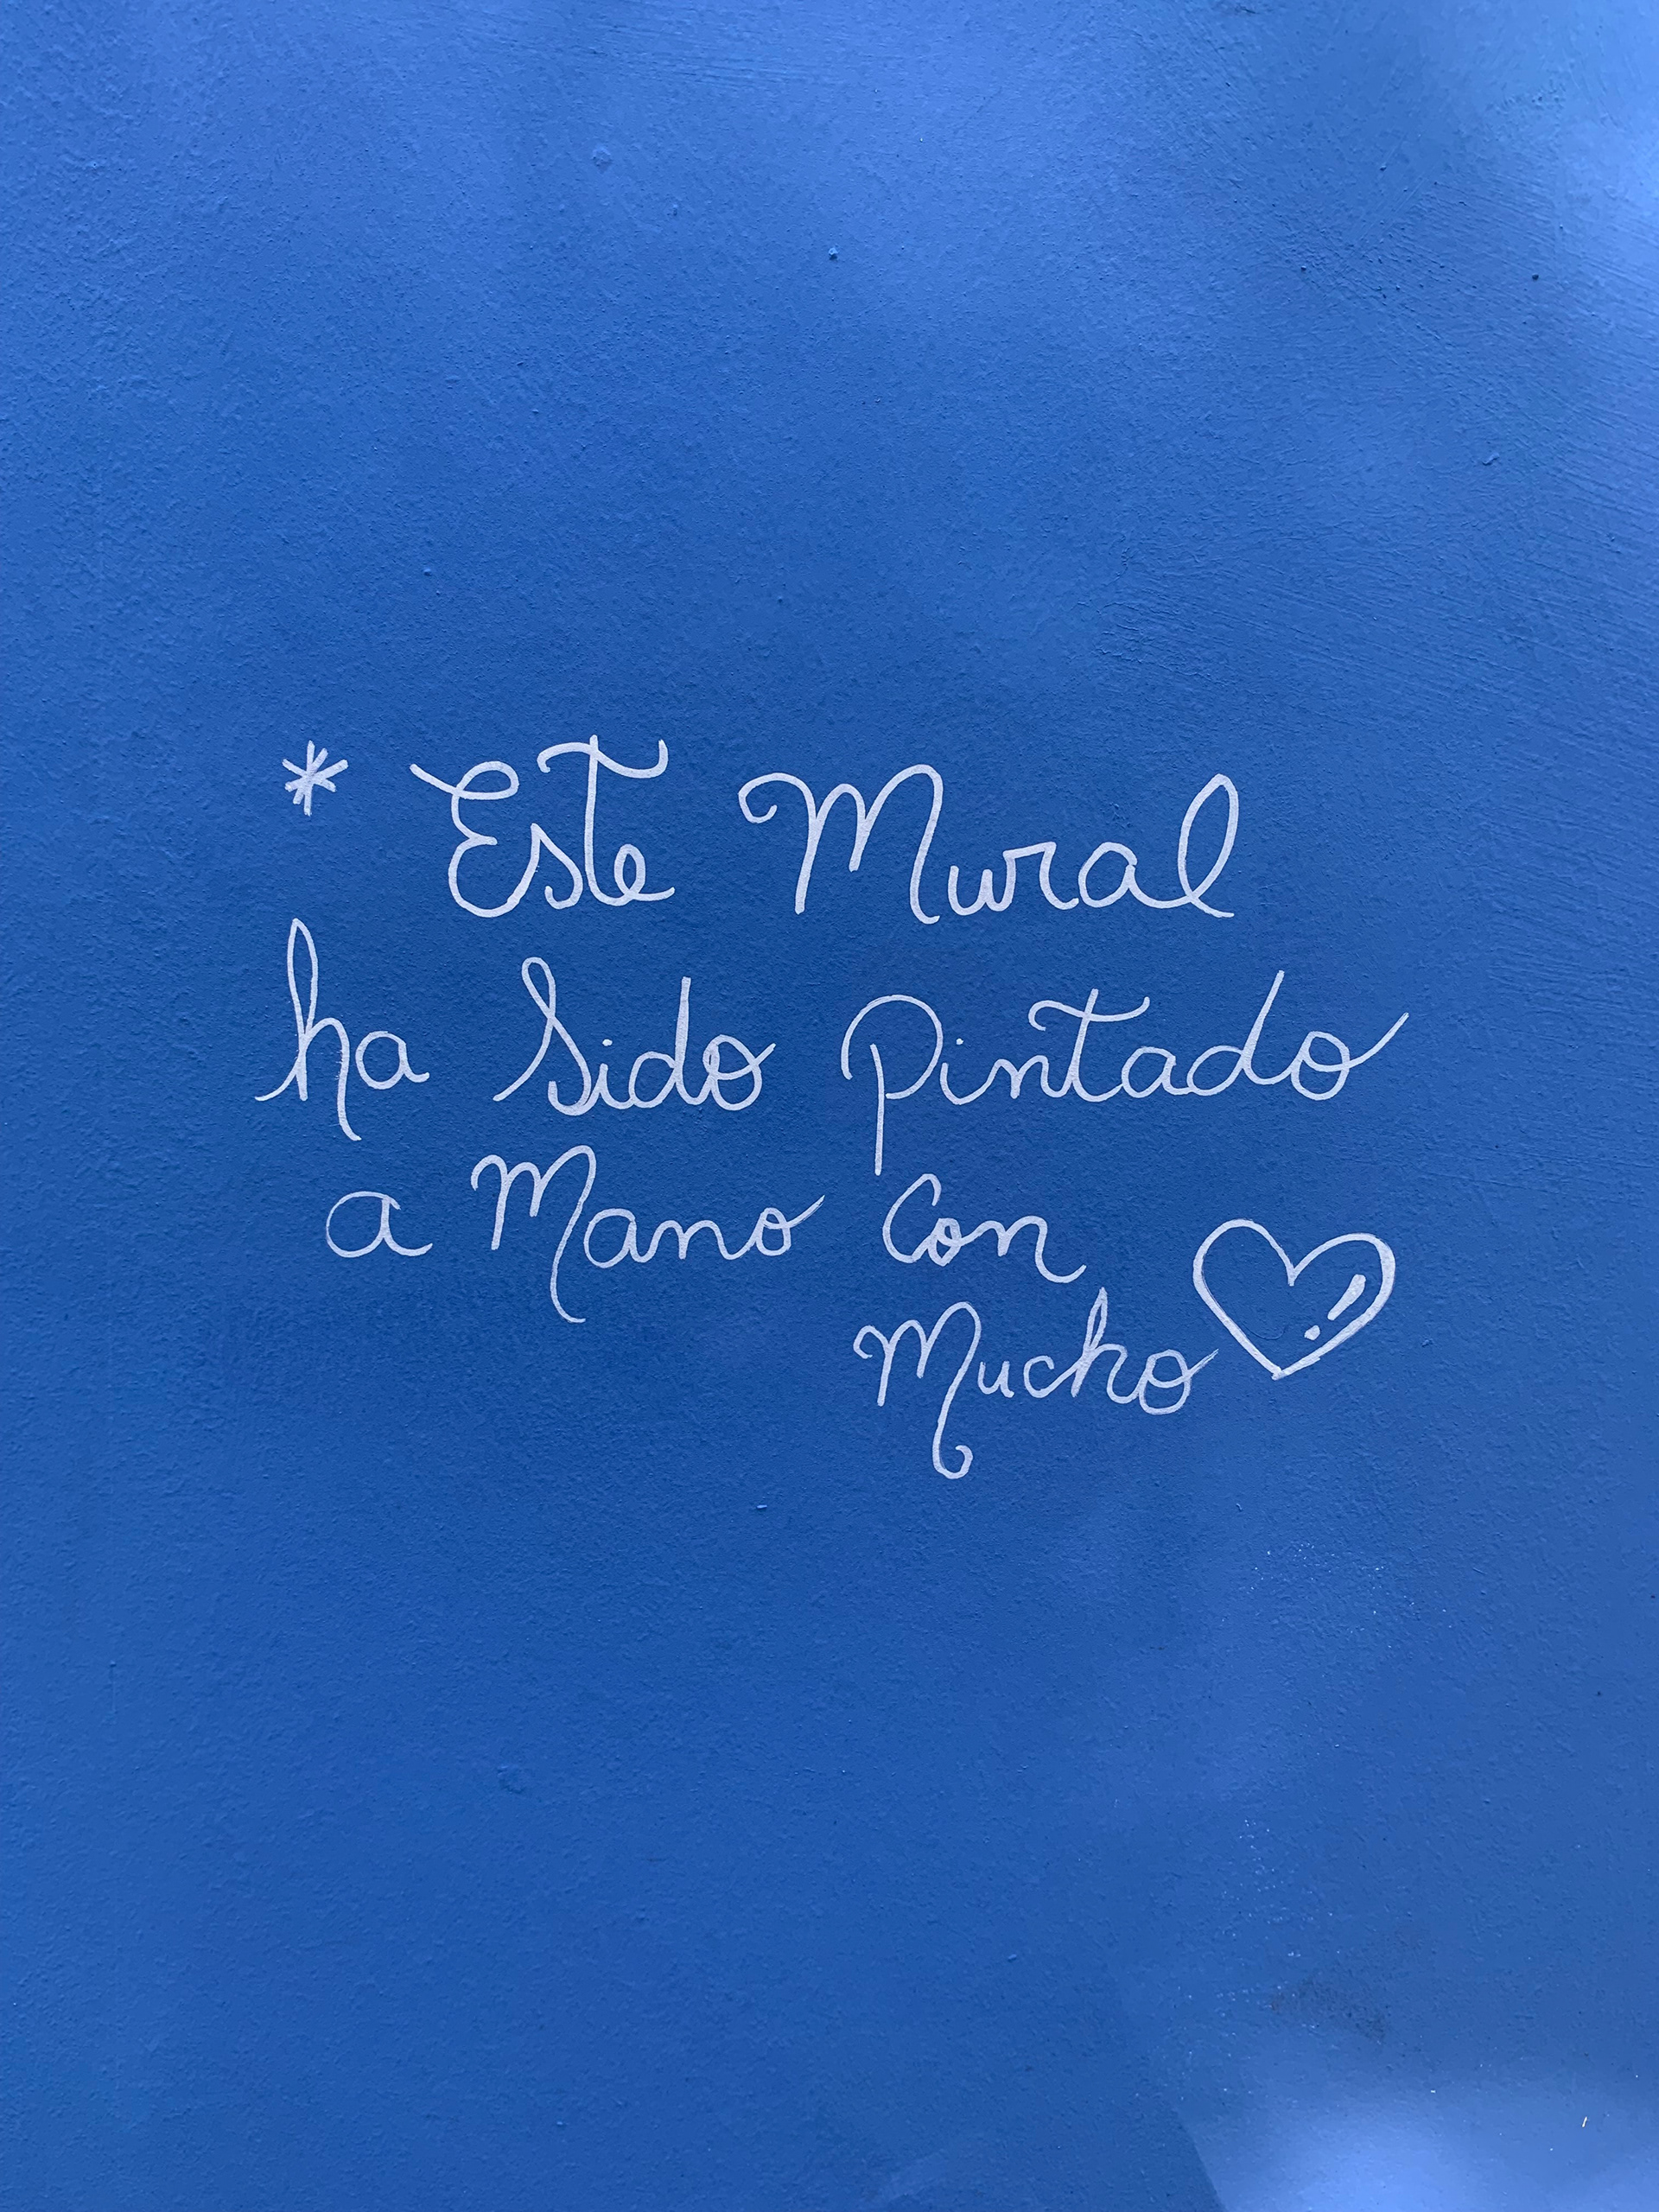 * Este Mural
ha Sido Pintado
a Mano Con
Mucho ♡